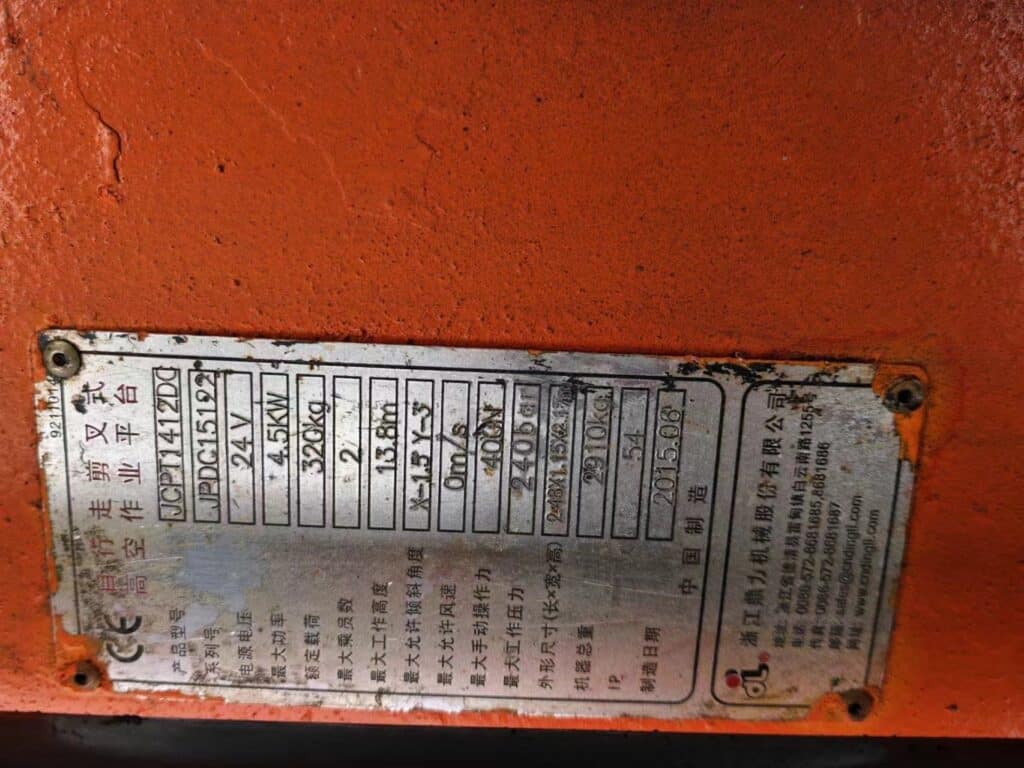 自行走剪叉式
高空作业平台
CE
产品型号 JCPT1412DC
系列号 JPDC15192
电源电压 24V
最大功率 4.5KW
额定载荷 320kg
最大乘员数 2
最大工作高度 13.8m
最大允许倾斜角度 X-1.5°Y-3°
最大允许风速 0m/s
最大手动操作力 400N
最大工作压力
外形尺寸(长×宽×高)
机器总重 2910kg
IP 54
制造日期 2015.06
中国制造
浙江鼎力机械股份有限公司
地址: 浙江省德清县雷甸镇白云南路1255号
电话: 0086-572-8681685,8681686
传真: 0086-572-8681687
邮箱: sales@cndingli.com
网址: www.cndingli.com